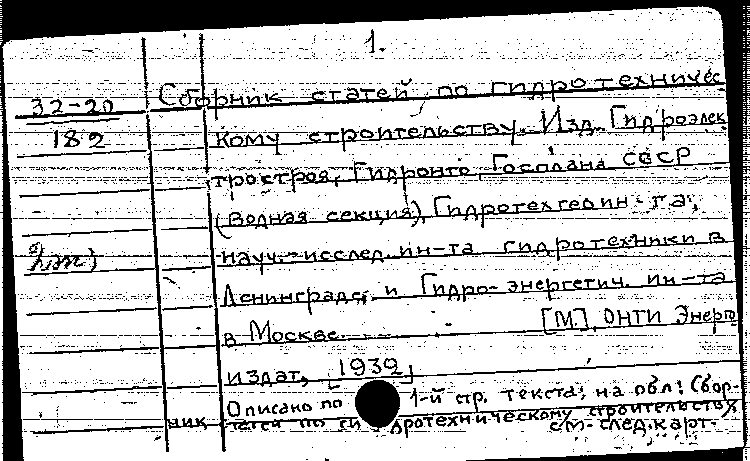 1.
32-20
182
Сборник статей по гидротехничес
кому строительству. Изд. Гидроэлек
тростроя, Гидронто, Госплана СССР
(водная секция), Гидротехгеоин-та,
науч.-исслед. ин-та гидротехники в
Ленинграде, и Гидро-энергетич. ин-та
в Москве. [М], ОНТИ Энерго
издат, [1932]
Описано по 1-й стр. текста; на обл: Сбор-
ник статей по гидротехническому строительству
см. след. карт.